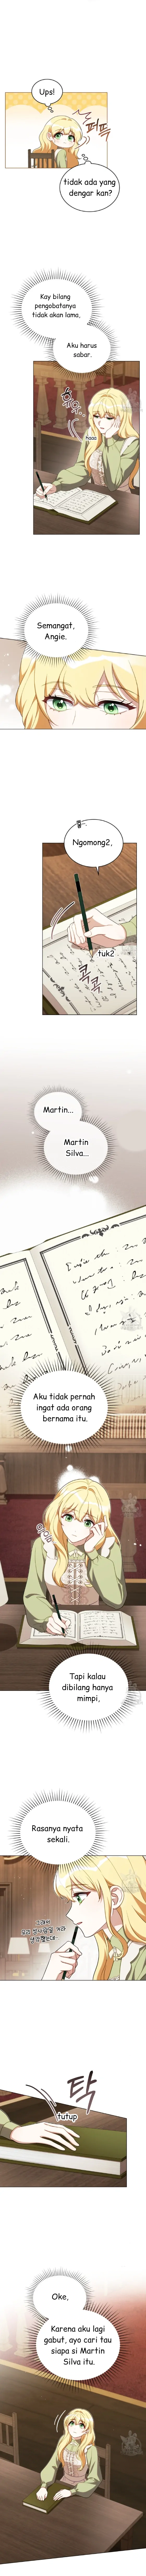 Ups!
tidak ada yang
dengar kan?
Kay bilang
pengobatanya
tidak akan lama,
Aku harus
sabar.
haaa
Semangat,
Angie.
Ngomong2,
tuk2
Martin...
Martin
Silva...
Aku tidak pernah
ingat ada orang
bernama itu.
Tapi kalau
dibilang hanya
mimpi,
Rasanya nyata
sekali.
탁
tutup
Oke,
Karena aku lagi
gabut, ayo cari tau
siapa si Martin
Silva itu.